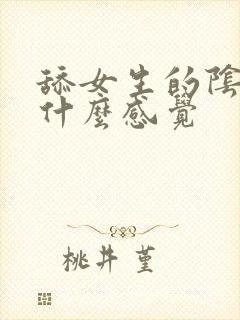 舔女生的陰
什麼感覺
桃井 堇